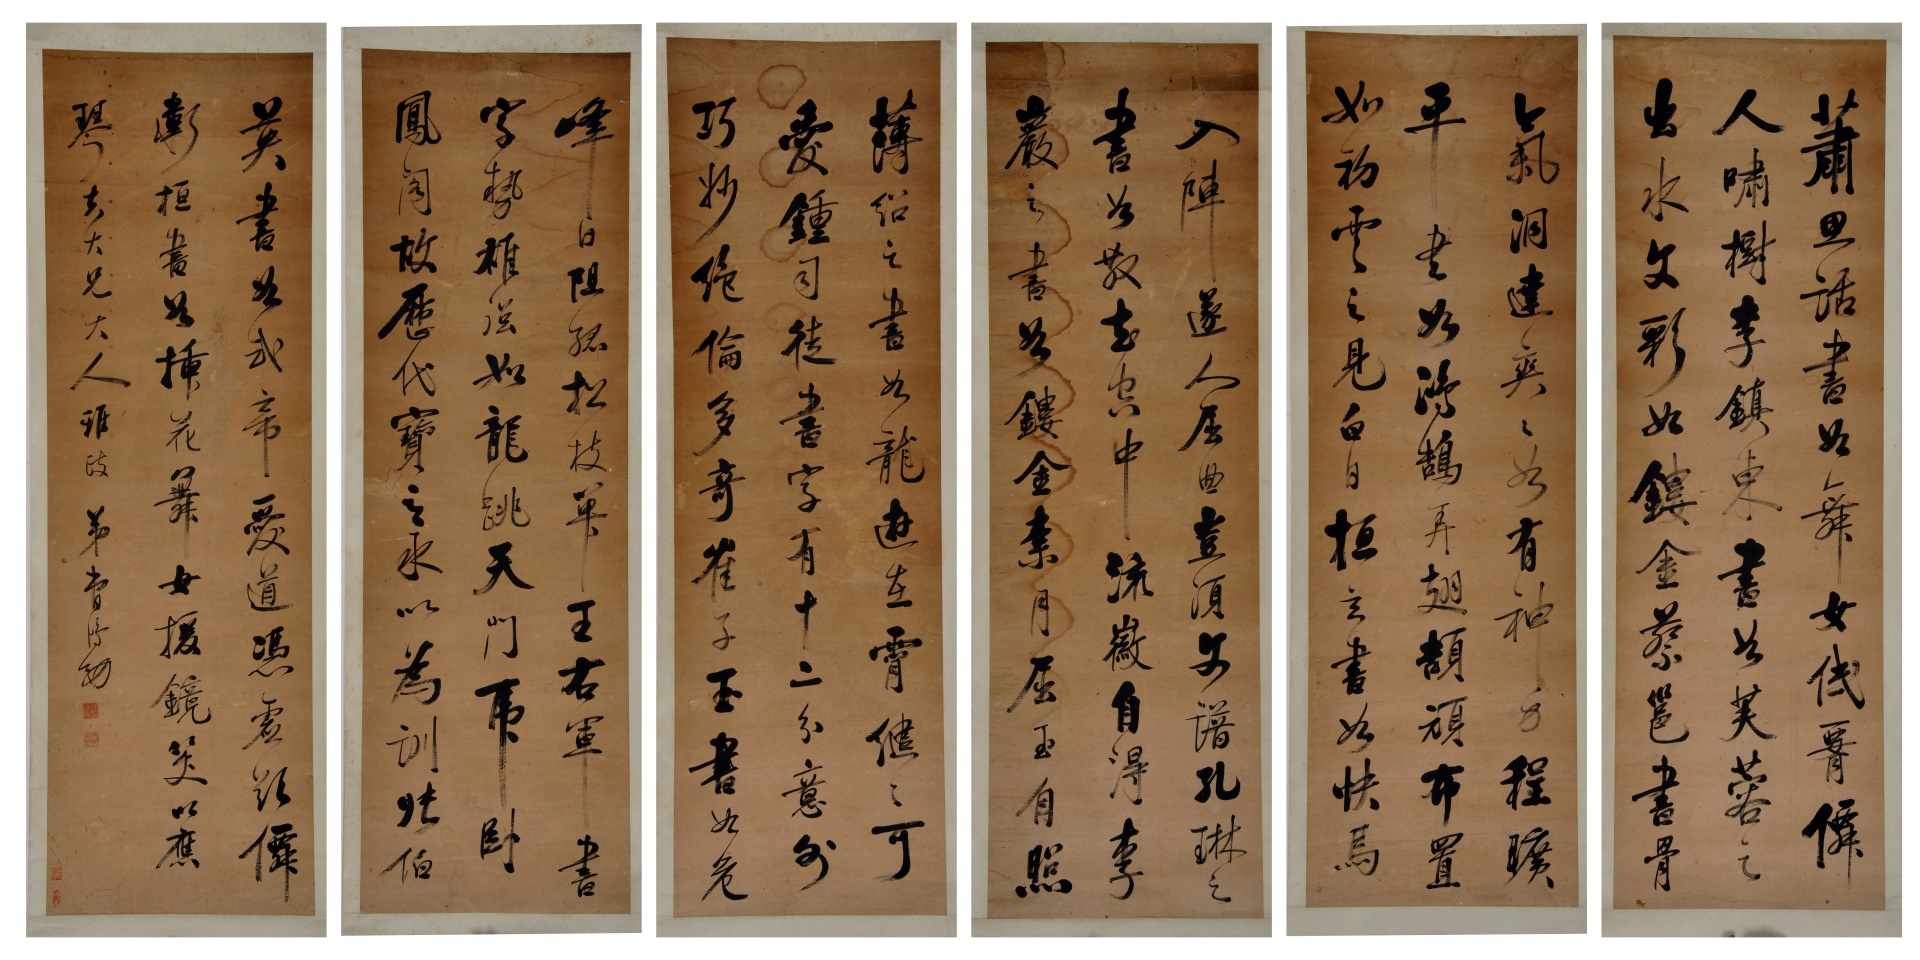 蕭思話書如舞女低腰僊
人嘯樹李鎮東書如芙蓉之
出水文彩如鏤金蔡邕書骨
氣洞達爽〻如有神力程曠
平書如鴻鵠弄翅頡頏布置
如初雲之見白日桓玄書如快馬
入陣遂人屈曲豈須文譜孔琳之
書如散花空中流徽自得李
巖之書如鏤金素月屈玉自照
薄紹之書如龍遊在霄繾〻可
愛鍾司徒書字有十二分意外
巧妙絕倫多奇崔子玉書如危
峰日阻孤松枝單王右軍書
字勢雄強如龍跳天門虎臥
鳳閣故歷代寶之永以為訓張伯
英書如武帝愛道憑虛欲僊
衛桓書如插花舞女援鏡笑以應
琴夫大兄大人雅政 弟曹鴻勛